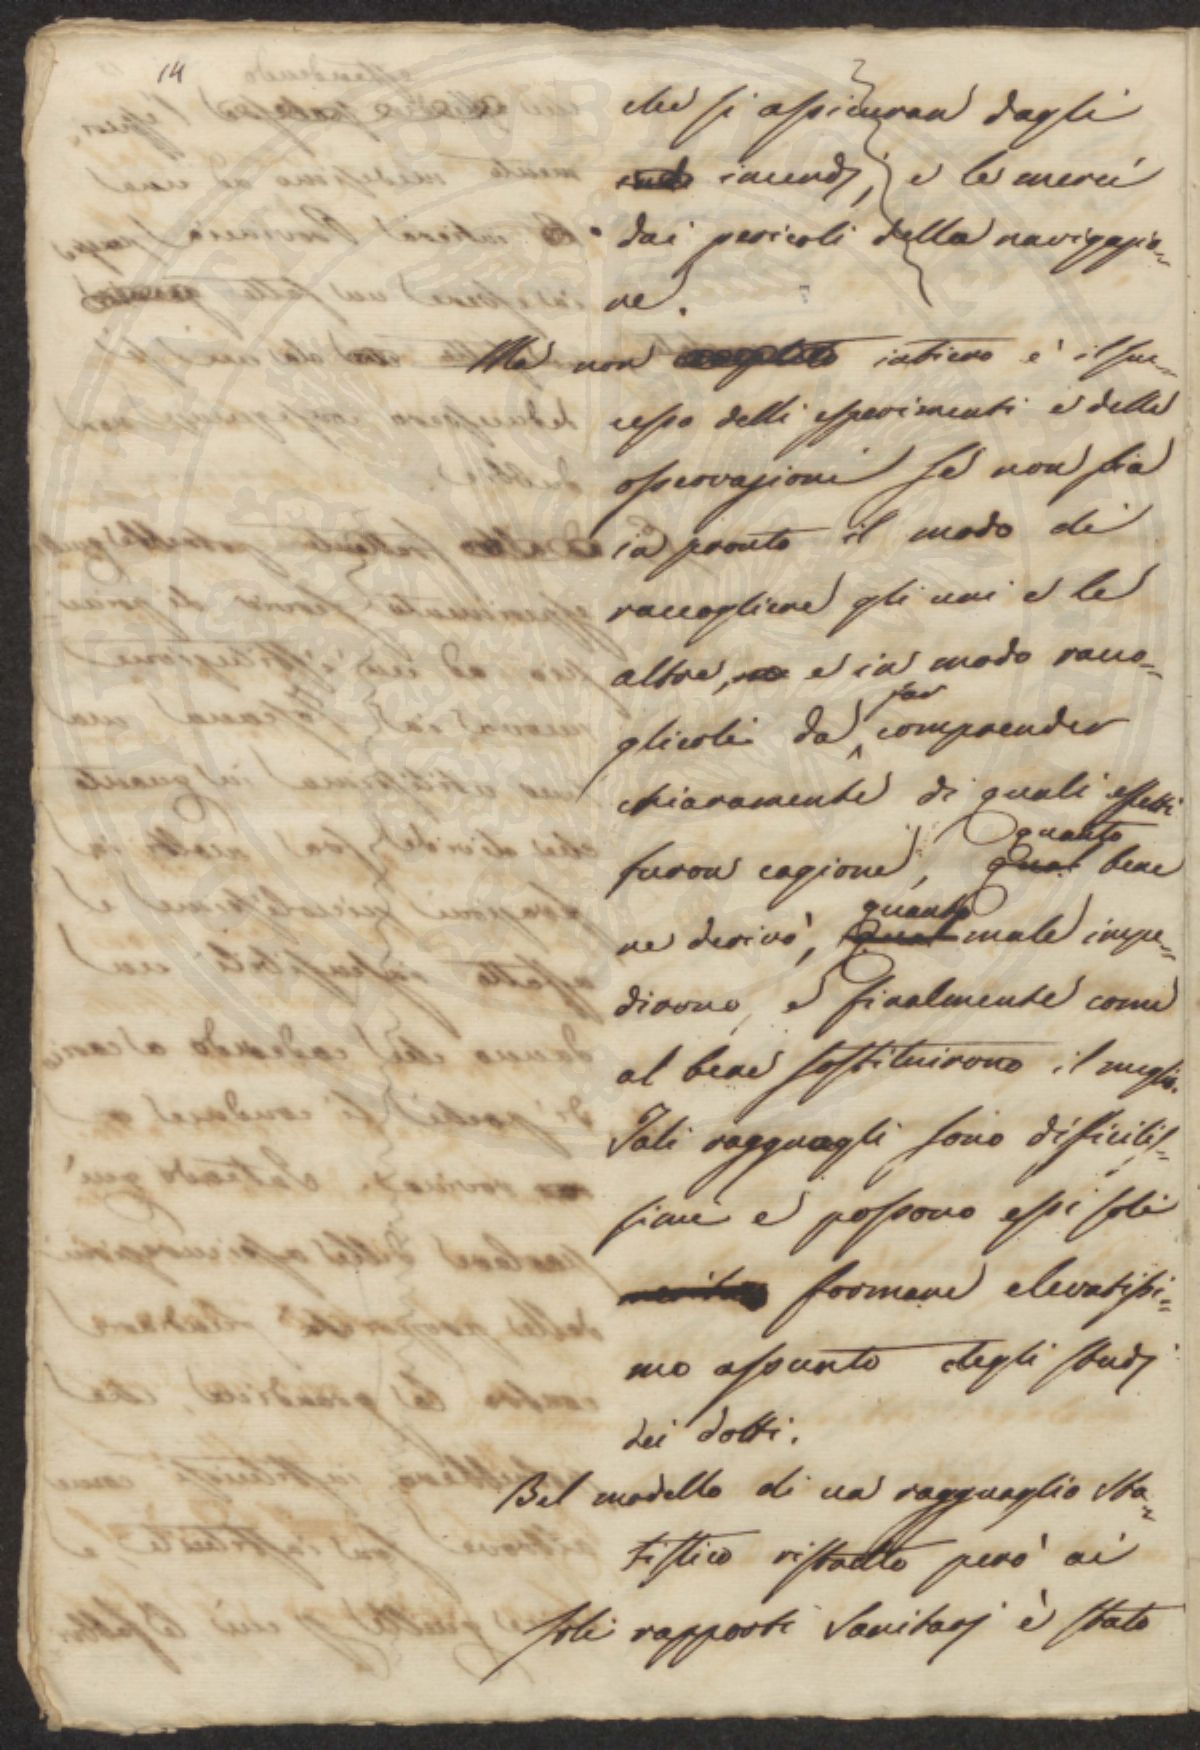 14
che si assicuran dagli
incendj, e le merci
dai pericoli della navigazio=
ne.
Ma non completo intiero è il suc=
cesso delli esperimenti e delle
osservazioni se non sia
in pronto il modo di
raccogliere gli uni e le
altre, e in modo racco=
glierli da far comprender
chiaramente di quali effetti
furon cagione, quanto bene
ne derivò, quanto male impe=
dirono, e finalmente come
al bene sostituirono il meglio.
Tali ragguagli sono difficilis=
simi e possono essi soli
formare elevatissi=
mo assunto degli studj
dei dotti.
Bel modello di un ragguaglio sta=
tistico ristretto però ai
soli rapporti Sanitarj è stato